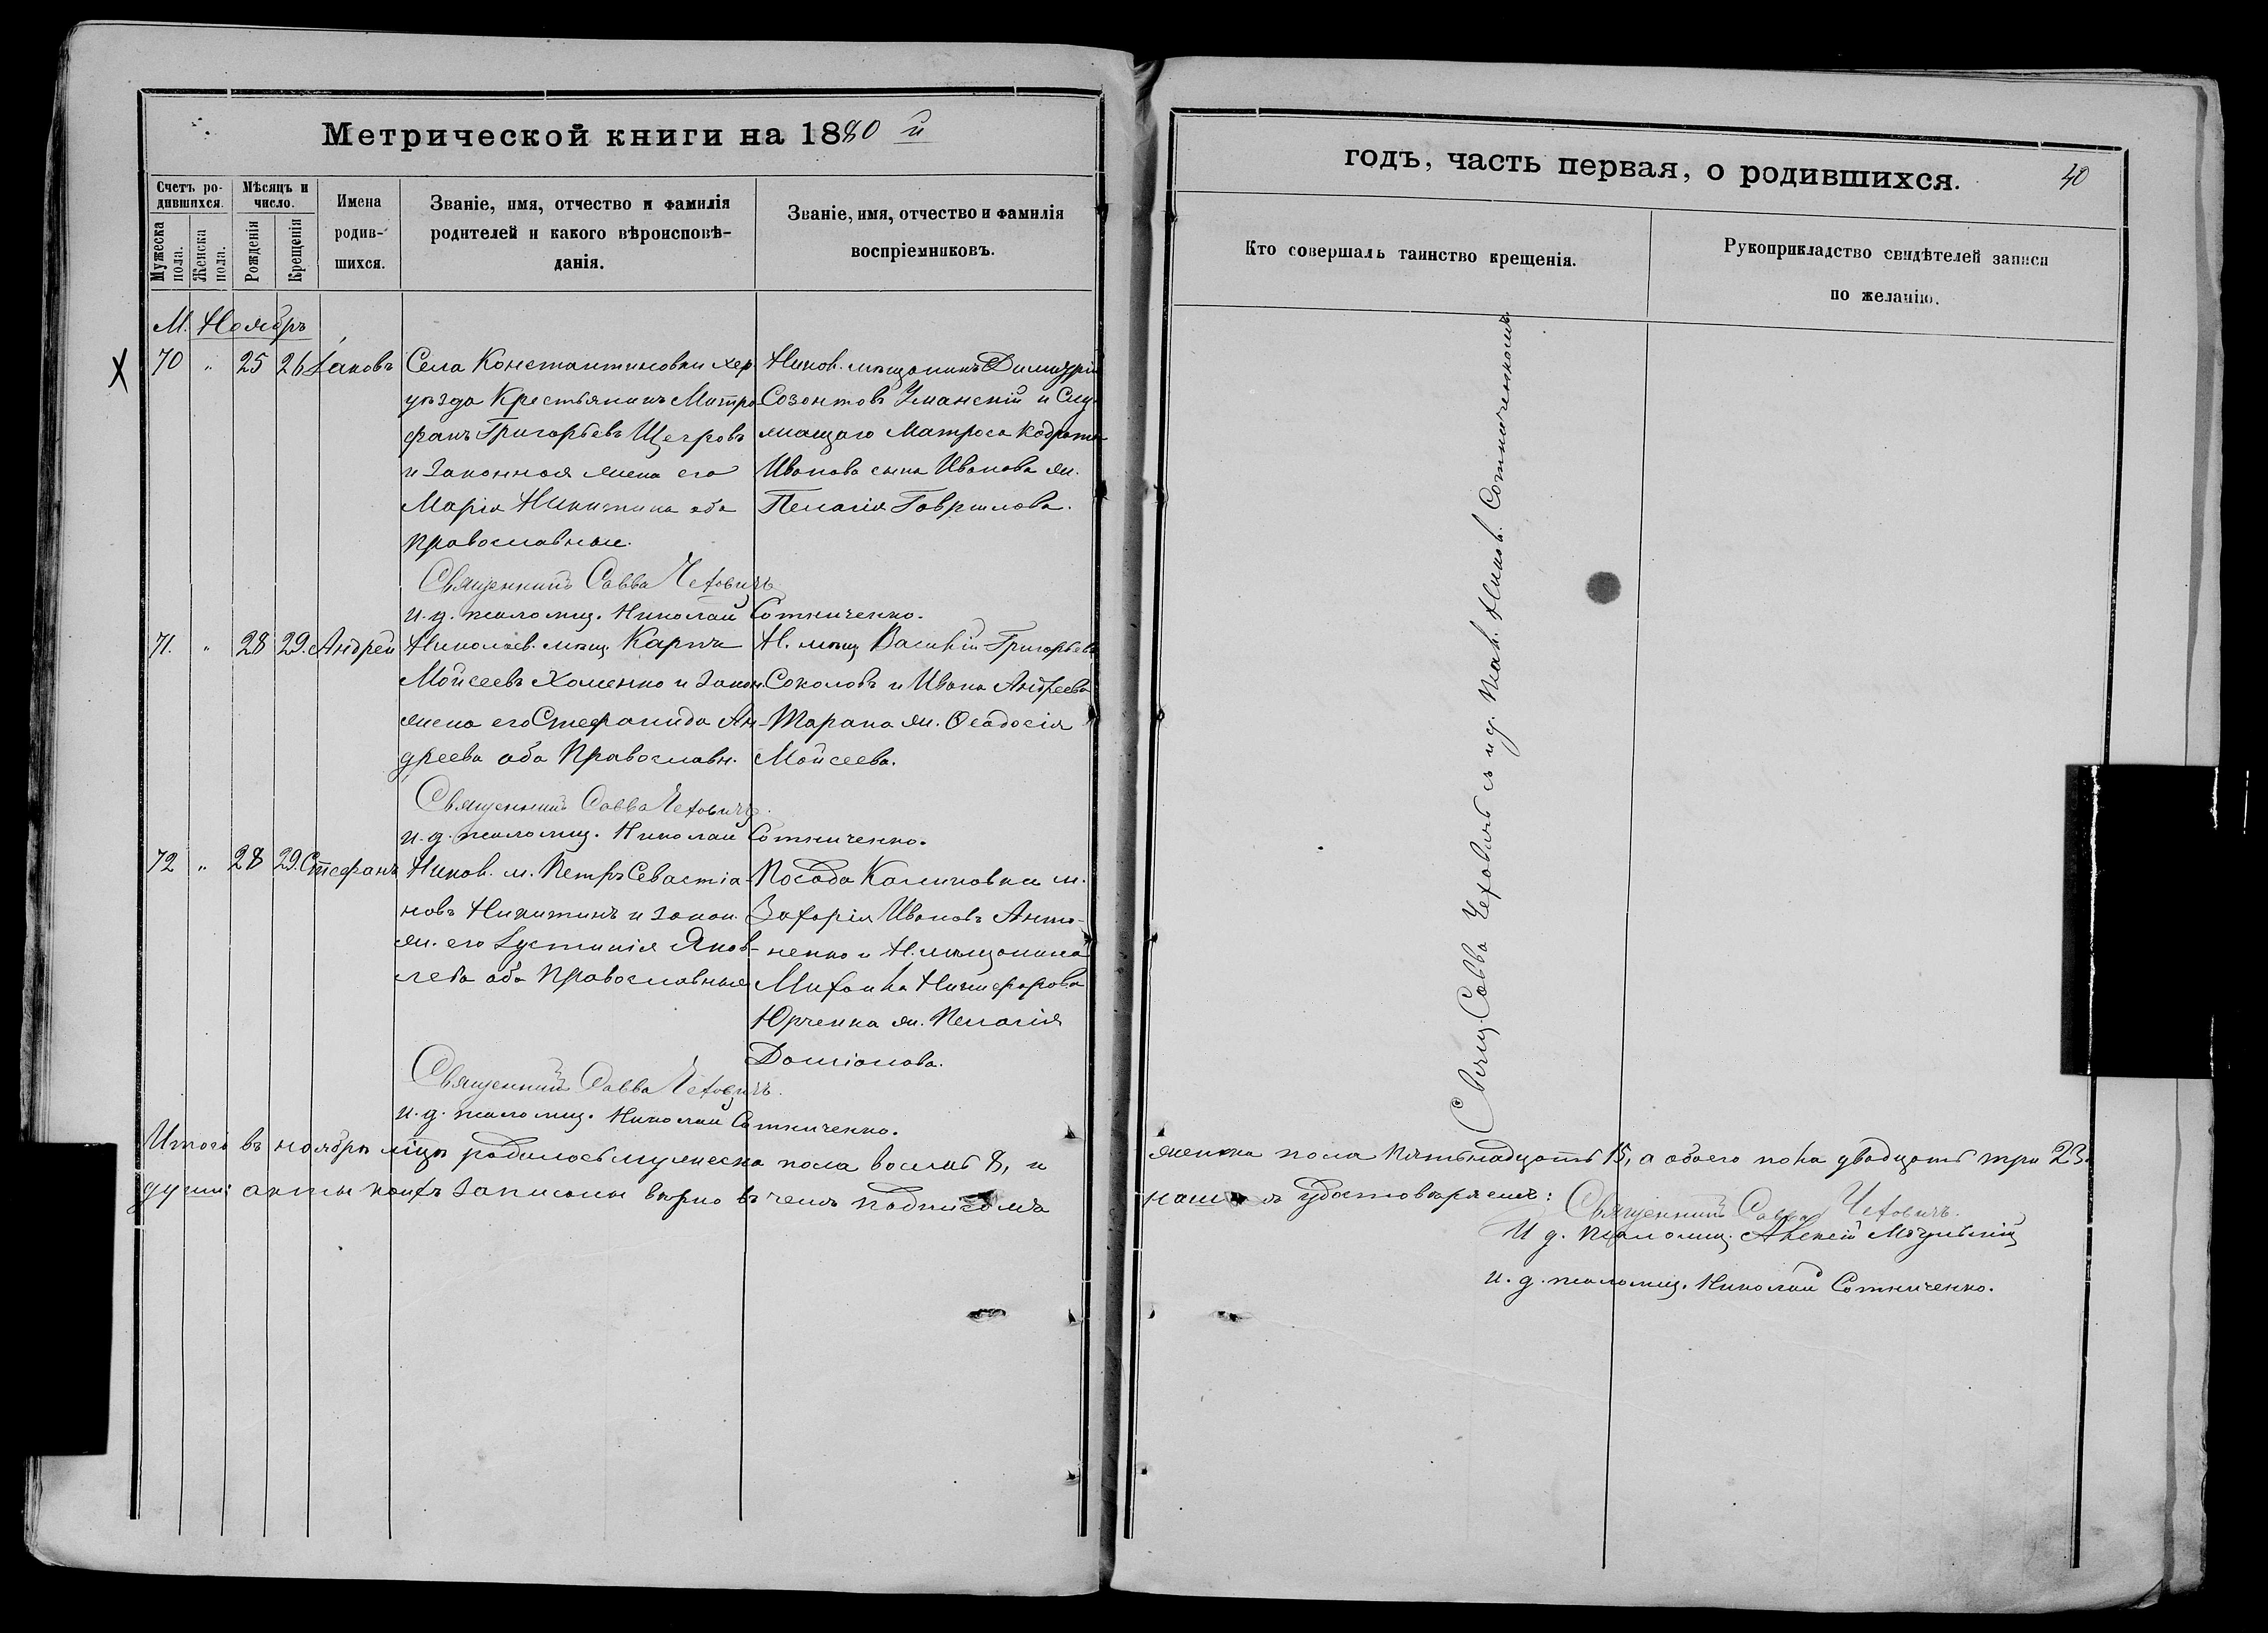 Метрической книги на 1880 й
Счетъ ро-
дившихся.
Мужеска
пола.
Женска
пола.
Мѣсяцъ и
число.
Рожденія
Крещенія
Имена
родив-
шихся.
Званіе, имя, отчество и фамилія
родителей и какого вѣроисповѣ-
данія.
Званіе, имя, отчество и фамилія
воспріемниковъ.
М. Ноябрь
70 " 25 26 Іаковъ
Села Константиновки Хер.
уѣзда Крестьянинъ Митро-
фанъ Григорьевъ Щегровъ
и законная жена его
Марія Никитина оба
православные.
Ников. мѣщанинъ Димитрій
Созонтовъ Уманскій и Слу-
жащаго Матроса
Иванова сына Иванова ж.
Пелагія Гаврилова.
Священникъ Савва Чеховичъ
и. д. псаломщ. Николай Сотниченко.
71. " 28 29. Андрей
Николаев. мѣщ. Карпъ
Мойсеевъ Хоменко и закон.
жена его Стефанида Ан-
дреева оба Православн.
Н. мѣщ Василій Григорьевъ
Соколовъ и Ивана Андреева
Тарана ж. Ѳеодосія
Мойсеева.
Священникъ Савва Чеховичъ.
и. д. псаломщ. Николай Сотниченко.
72 " 28 29. Стефанъ
Ников. м. Петръ Севастіа-
новъ Никитинъ и закон.
ж. его Іустинія Яков-
лева оба Православные
Посада Калиновки м.
Захарія Ивановъ Анто-
ненко и Н. мѣщанина
Михаила Никифорова
Юрченка ж. Пелагія
Доміанова.
Священникъ Савва Чеховичъ.
и. д. псаломщ. Николай Сотниченко.
Итого въ ноябрѣ м͠цѣ родилось мужеска пола восемь 8, и
душъ: акты коихъ записаны вѣрно въ чемъ подписомъ
годъ, часть первая, о родившихся.
40
Кто совершалъ таинство крещенія.
Рукоприкладство свидѣтелей записи
по желанію.
Свящ. Савва Чеховичъ съ и. д. псал. Никол. Сотниченкомъ
женска пола пятьнадцать 15, а обоего пола двадцать три 23.
нашимъ удостовѣряемъ:
Священникъ Савва Чеховичъ.
И д. псаломщ. Алексій
и. д. псаломщ. Николай Сотниченко.